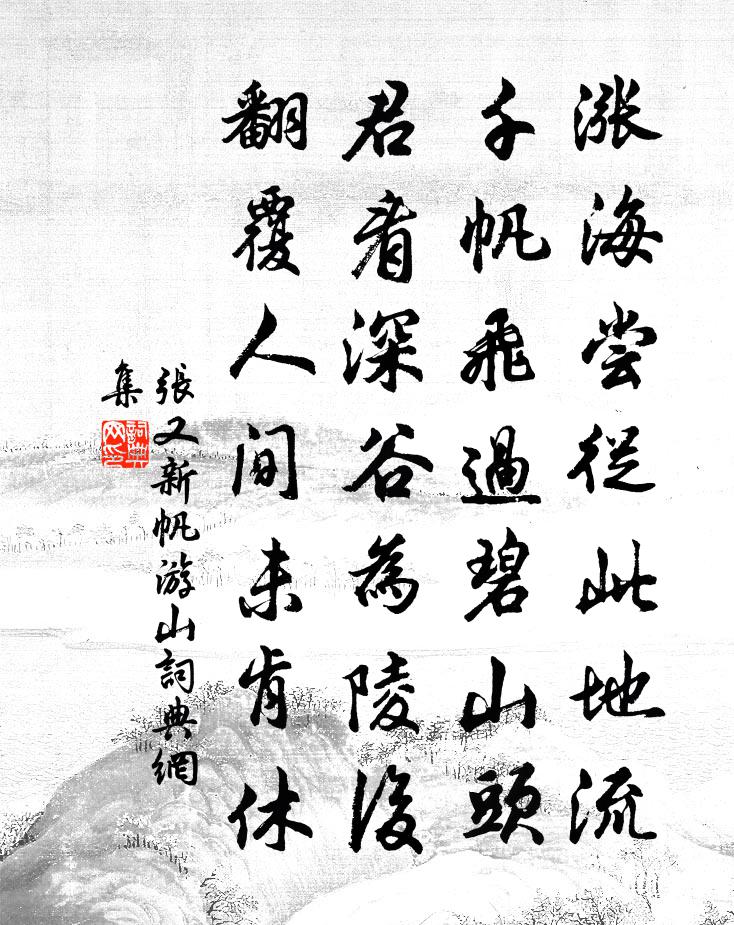 漲海嘗從此地流
千帆飛過碧山頭
君看深谷為陵後
翻覆人間未肯休
張又新帆游山詞典網
集